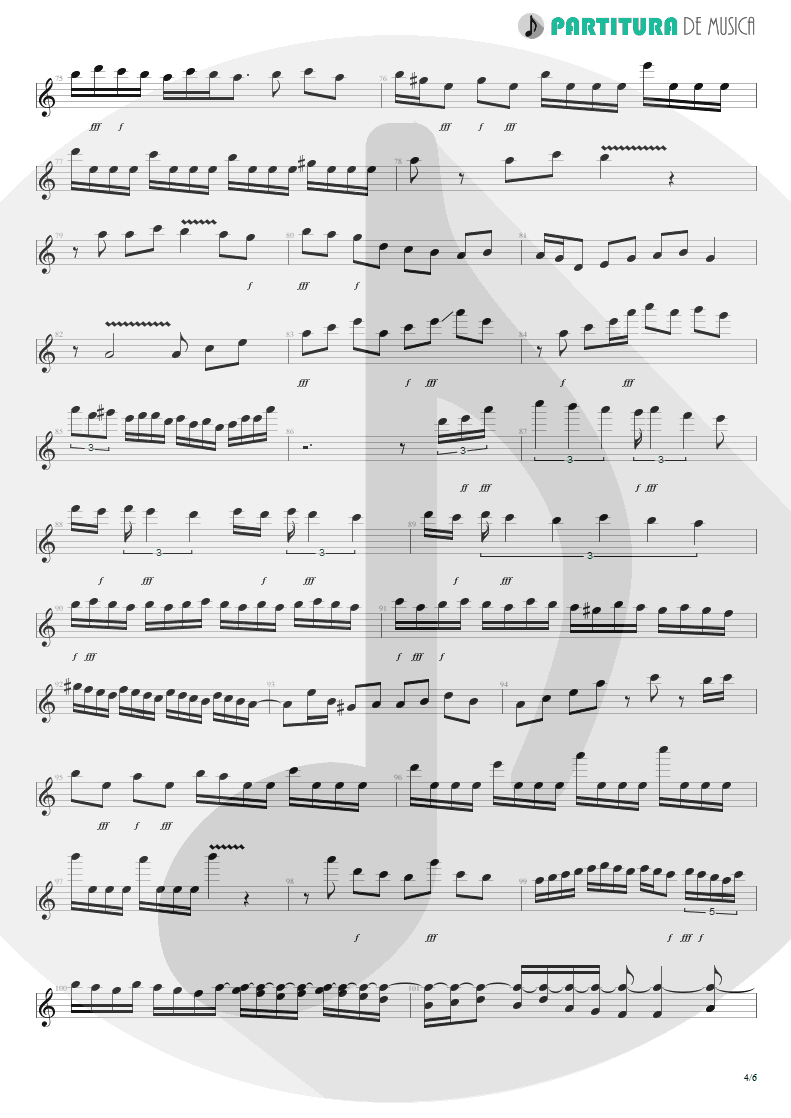 PARTITURA DE MUSICA
75 76
fff f fff f fff
77 78
79 80 81
f fff f
82 83 84
fff f fff f fff
85 86 87
3 3 3 3
ff fff f fff
88 89
3 3 3
f fff f fff f fff
90 91
f fff f fff f
92 93 94
95 96
fff f fff
97 98 99
5
f fff f fff f
100 101
4/6